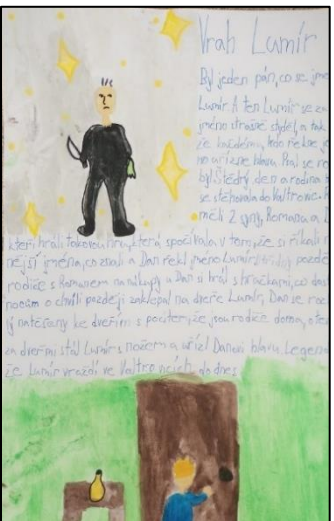 Vrah Lumír
Byl jeden pán, co se jme
Lumír. A ten Lumír se za
jméno strašně styděl, a tak
že každému, kdo řekne je
no uřízne hlavu. Pak se
byl štědrý den a rodina
se stěhovala do Valtrovic.
měli 2 syny, Romana a
kteří hráli takovou hru, která spočívala v tom, že si říkali
nější jména, co znali a Dan řekl jméno Lumír. pozdě
rodiče s Romanem na nákupy a Dan si hrál s hračkami, co dos
nocům o chvíli později zaklepal na dveře Lumír, Dan se roz
l natěšaný ke dveřím s pocitem, že jsou rodiče doma, ote
za dveřmi stál Lumír s nožem a uřízl Danovi hlavu. Legen
že Lumír vraždí ve Valtrovicích do dnes